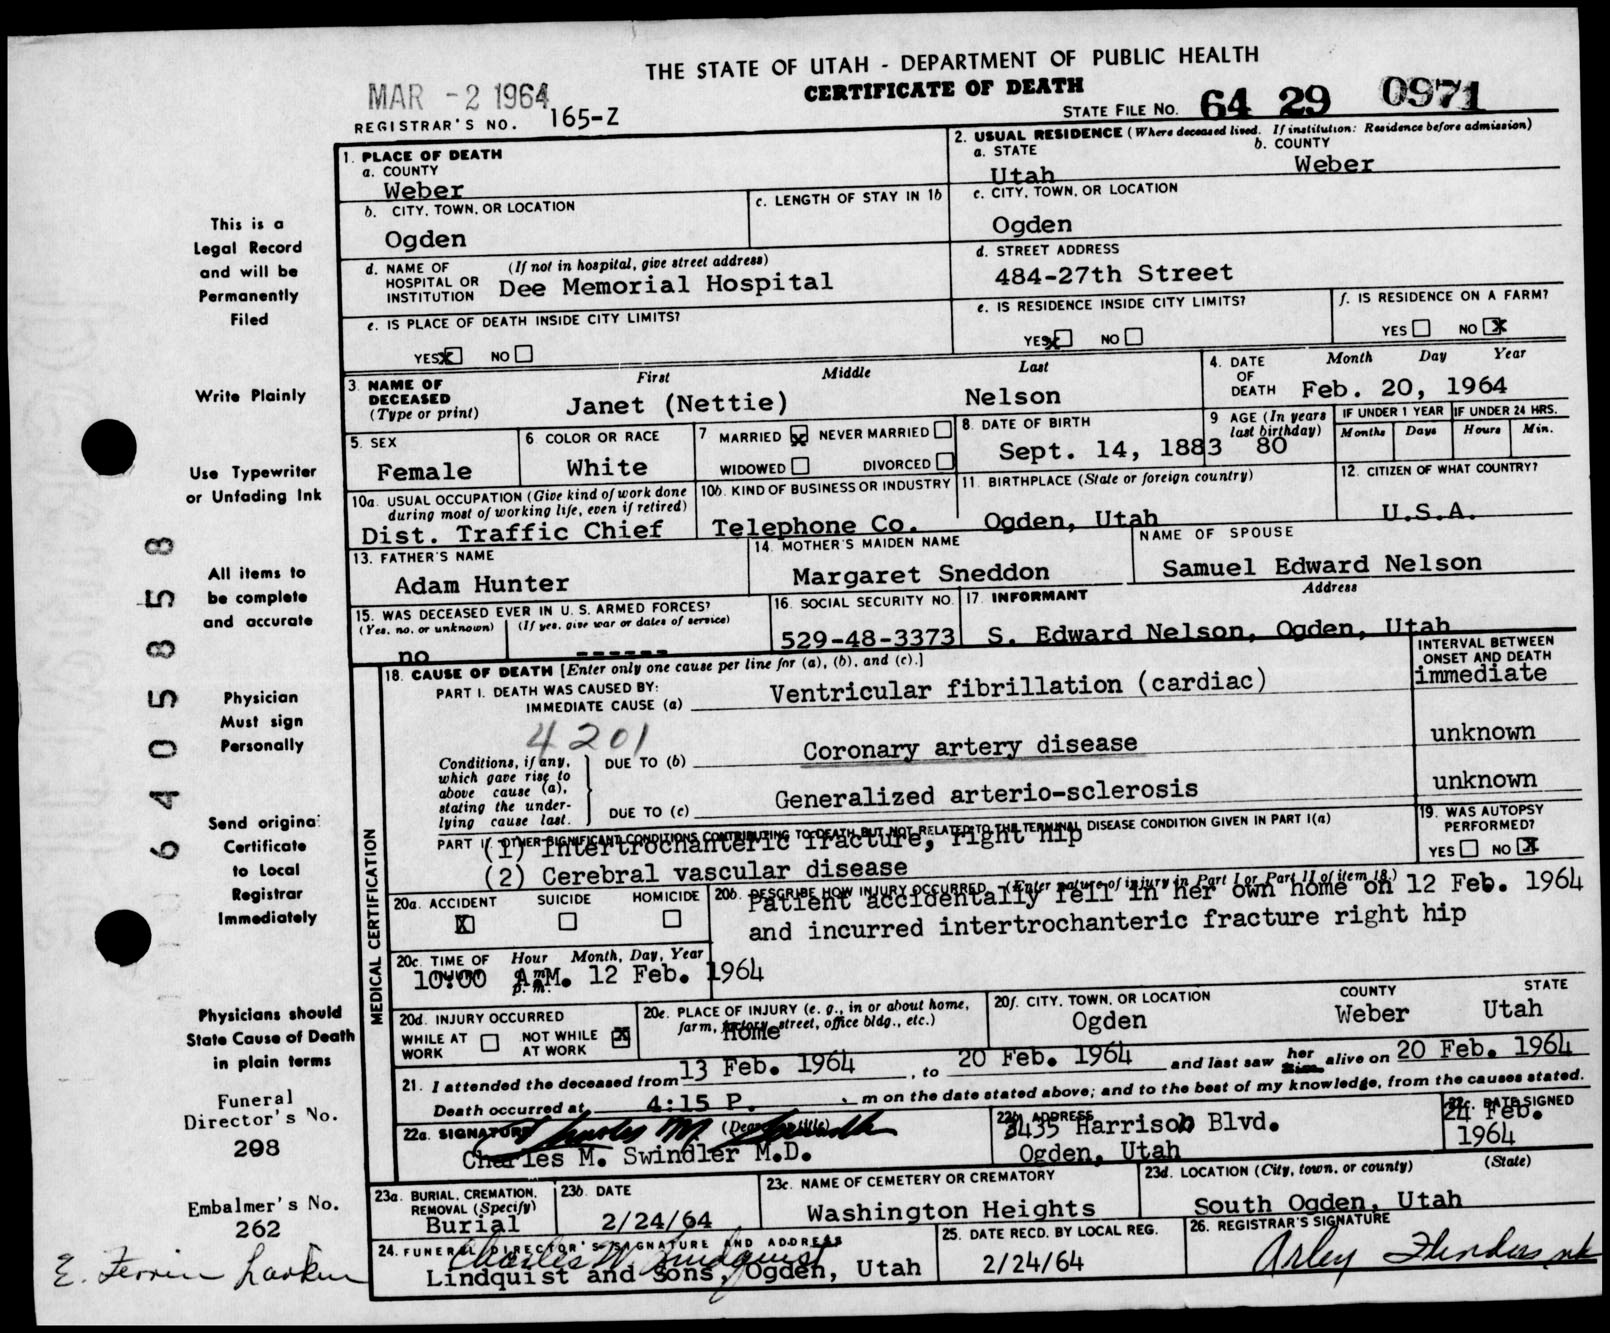 THE STATE OF UTAH - DEPARTMENT OF PUBLIC HEALTH
CERTIFICATE OF DEATH
MAR - 2 1964
REGISTRAR'S NO. 165-Z
STATE FILE NO. 64 29 0971
1. PLACE OF DEATH
a. COUNTY
Weber
2. USUAL RESIDENCE (Where deceased lived. If institution: Residence before admission)
a. STATE
Utah
b. COUNTY
Weber
b. CITY, TOWN, OR LOCATION
Ogden
c. LENGTH OF STAY IN 1b
c. CITY, TOWN, OR LOCATION
Ogden
d. NAME OF HOSPITAL OR INSTITUTION
(If not in hospital, give street address)
Dee Memorial Hospital
d. STREET ADDRESS
484-27th Street
e. IS PLACE OF DEATH INSIDE CITY LIMITS?
YES X NO
e. IS RESIDENCE INSIDE CITY LIMITS?
YES X NO
f. IS RESIDENCE ON A FARM?
YES NO X
3. NAME OF DECEASED
(Type or print)
First Middle Last
Janet (Nettie) Nelson
4. DATE OF DEATH
Month Day Year
Feb. 20, 1964
5. SEX
Female
6 COLOR OR RACE
White
7 MARRIED X NEVER MARRIED
WIDOWED DIVORCED
8. DATE OF BIRTH
Sept. 14, 1883
9 AGE (In years last birthday)
80
IF UNDER 1 YEAR
Months Days
IF UNDER 24 HRS.
Hours Min.
10a. USUAL OCCUPATION (Give kind of work done during most of working life, even if retired)
Dist. Traffic Chief
10b. KIND OF BUSINESS OR INDUSTRY
Telephone Co.
11. BIRTHPLACE (State or foreign country)
Ogden, Utah
12. CITIZEN OF WHAT COUNTRY?
U.S.A.
13. FATHER'S NAME
Adam Hunter
14. MOTHER'S MAIDEN NAME
Margaret Sneddon
NAME OF SPOUSE
Samuel Edward Nelson
15. WAS DECEASED EVER IN U. S. ARMED FORCES?
(Yes, no, or unknown) (If yes, give war or dates of service)
no ------
16. SOCIAL SECURITY NO.
529-48-3373
17. INFORMANT Address
S. Edward Nelson, Ogden, Utah
18. CAUSE OF DEATH [Enter only one cause per line for (a), (b), and (c).]
INTERVAL BETWEEN ONSET AND DEATH
PART I. DEATH WAS CAUSED BY:
IMMEDIATE CAUSE (a) Ventricular fibrillation (cardiac)
immediate
4201
Conditions, if any, which gave rise to above cause (a), stating the underlying cause last.
DUE TO (b) Coronary artery disease
unknown
DUE TO (c) Generalized arterio-sclerosis
unknown
PART II. OTHER SIGNIFICANT CONDITIONS CONTRIBUTING TO DEATH BUT NOT RELATED TO THE TERMINAL DISEASE CONDITION GIVEN IN PART I(a)
(1) Intertrochanteric fracture, right hip
(2) Cerebral vascular disease
19. WAS AUTOPSY PERFORMED?
YES NO X
MEDICAL CERTIFICATION
20a. ACCIDENT SUICIDE HOMICIDE
X
20b. DESCRIBE HOW INJURY OCCURRED. (Enter nature of injury in Part I or Part II of item 18.)
Patient accidentally fell in her own home on 12 Feb. 1964
and incurred intertrochanteric fracture right hip
20c. TIME OF Hour Month, Day, Year
10:00 A.M. 12 Feb. 1964
p. m.
20d. INJURY OCCURRED
WHILE AT WORK NOT WHILE AT WORK X
20e. PLACE OF INJURY (e. g., in or about home, farm, factory, street, office bldg., etc.)
Home
20f. CITY, TOWN, OR LOCATION COUNTY STATE
Ogden Weber Utah
21. I attended the deceased from 13 Feb. 1964, to 20 Feb. 1964 and last saw her him alive on 20 Feb. 1964
Death occurred at 4:15 P. m on the date stated above; and to the best of my knowledge, from the causes stated.
22a. SIGNATURE (Degree or title)
Charles M. Swindler
Charles M. Swindler M.D.
22b. ADDRESS
3435 Harrison Blvd.
Ogden, Utah
22c. DATE SIGNED
24 Feb.
1964
23a. BURIAL, CREMATION, REMOVAL (Specify)
Burial
23b. DATE
2/24/64
23c. NAME OF CEMETERY OR CREMATORY
Washington Heights
23d. LOCATION (City, town, or county) (State)
South Ogden, Utah
24. FUNERAL DIRECTOR'S SIGNATURE AND ADDRESS
Charles W. Lindquist
Lindquist and Sons, Ogden, Utah
25. DATE RECD. BY LOCAL REG.
2/24/64
26. REGISTRAR'S SIGNATURE
Arley Flinders
This is a
Legal Record
and will be
Permanently
Filed
Write Plainly
Use Typewriter
or Unfading Ink
All items to
be complete
and accurate
Physician
Must sign
Personally
Send original
Certificate
to Local
Registrar
Immediately
Physicians should
State Cause of Death
in plain terms
Funeral
Director's No.
298
Embalmer's No.
262
E. Ferrin Larkin
64058558